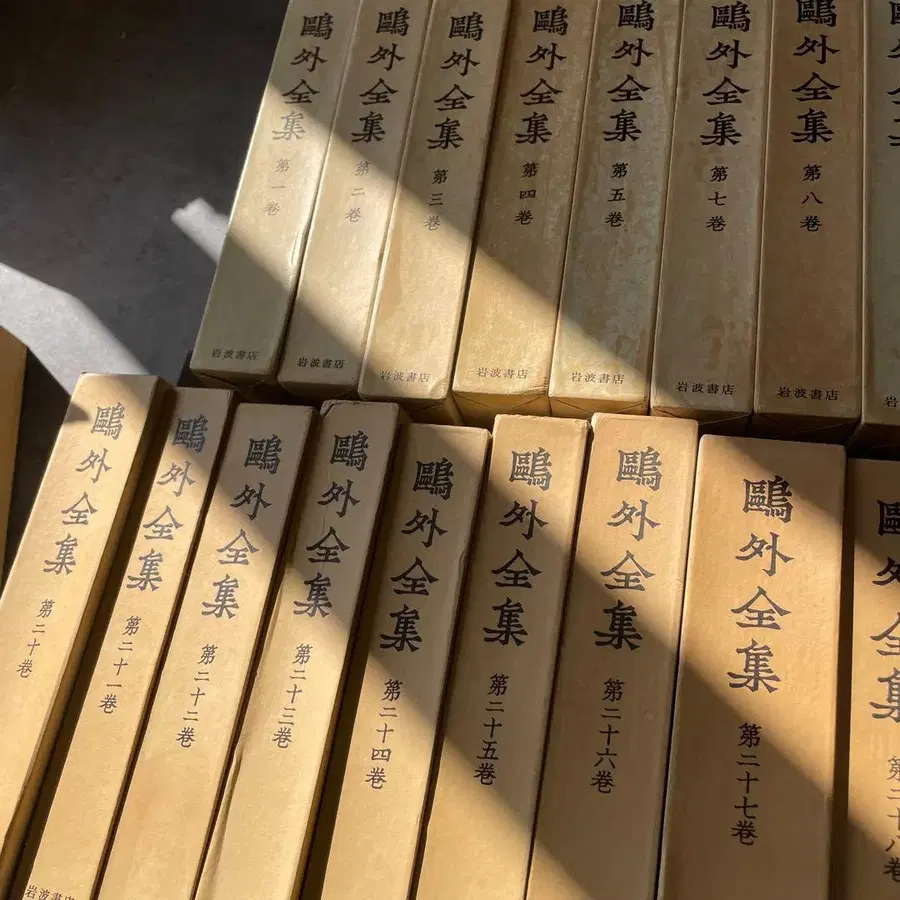 鷗外全集 第一巻 岩波書店
鷗外全集 第二巻 岩波書店
鷗外全集 第三巻 岩波書店
鷗外全集 第四巻 岩波書店
鷗外全集 第五巻 岩波書店
鷗外全集 第七巻 岩波書店
鷗外全集 第八巻 岩波書店
鷗外全集 第二十巻
鷗外全集 第二十一巻 岩波書店
鷗外全集 第二十二巻
鷗外全集 第二十三巻
鷗外全集 第二十四巻
鷗外全集 第二十五巻
鷗外全集 第二十六巻
鷗外全集 第二十七巻
鷗外全集 第二十八巻